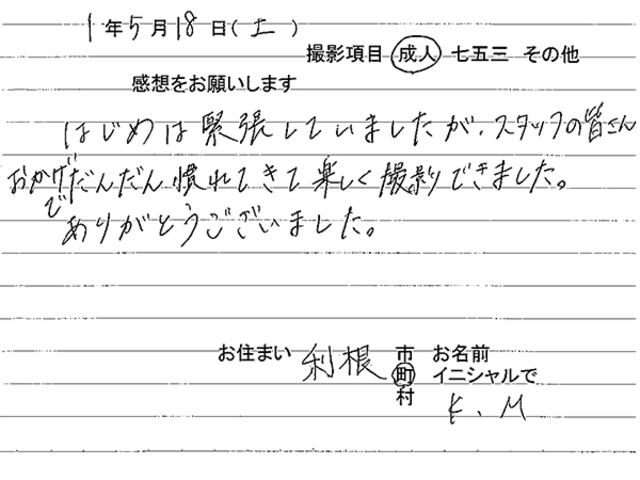 1年5月18日(土)
撮影項目 成人 七五三 その他
感想をお願いします
はじめは緊張していましたが、スタッフの皆さん
おかげでだんだん慣れてきて楽しく撮影できました。
ありがとうございました。
お住まい 利根 市町村 お名前 イニシャルで
K.M